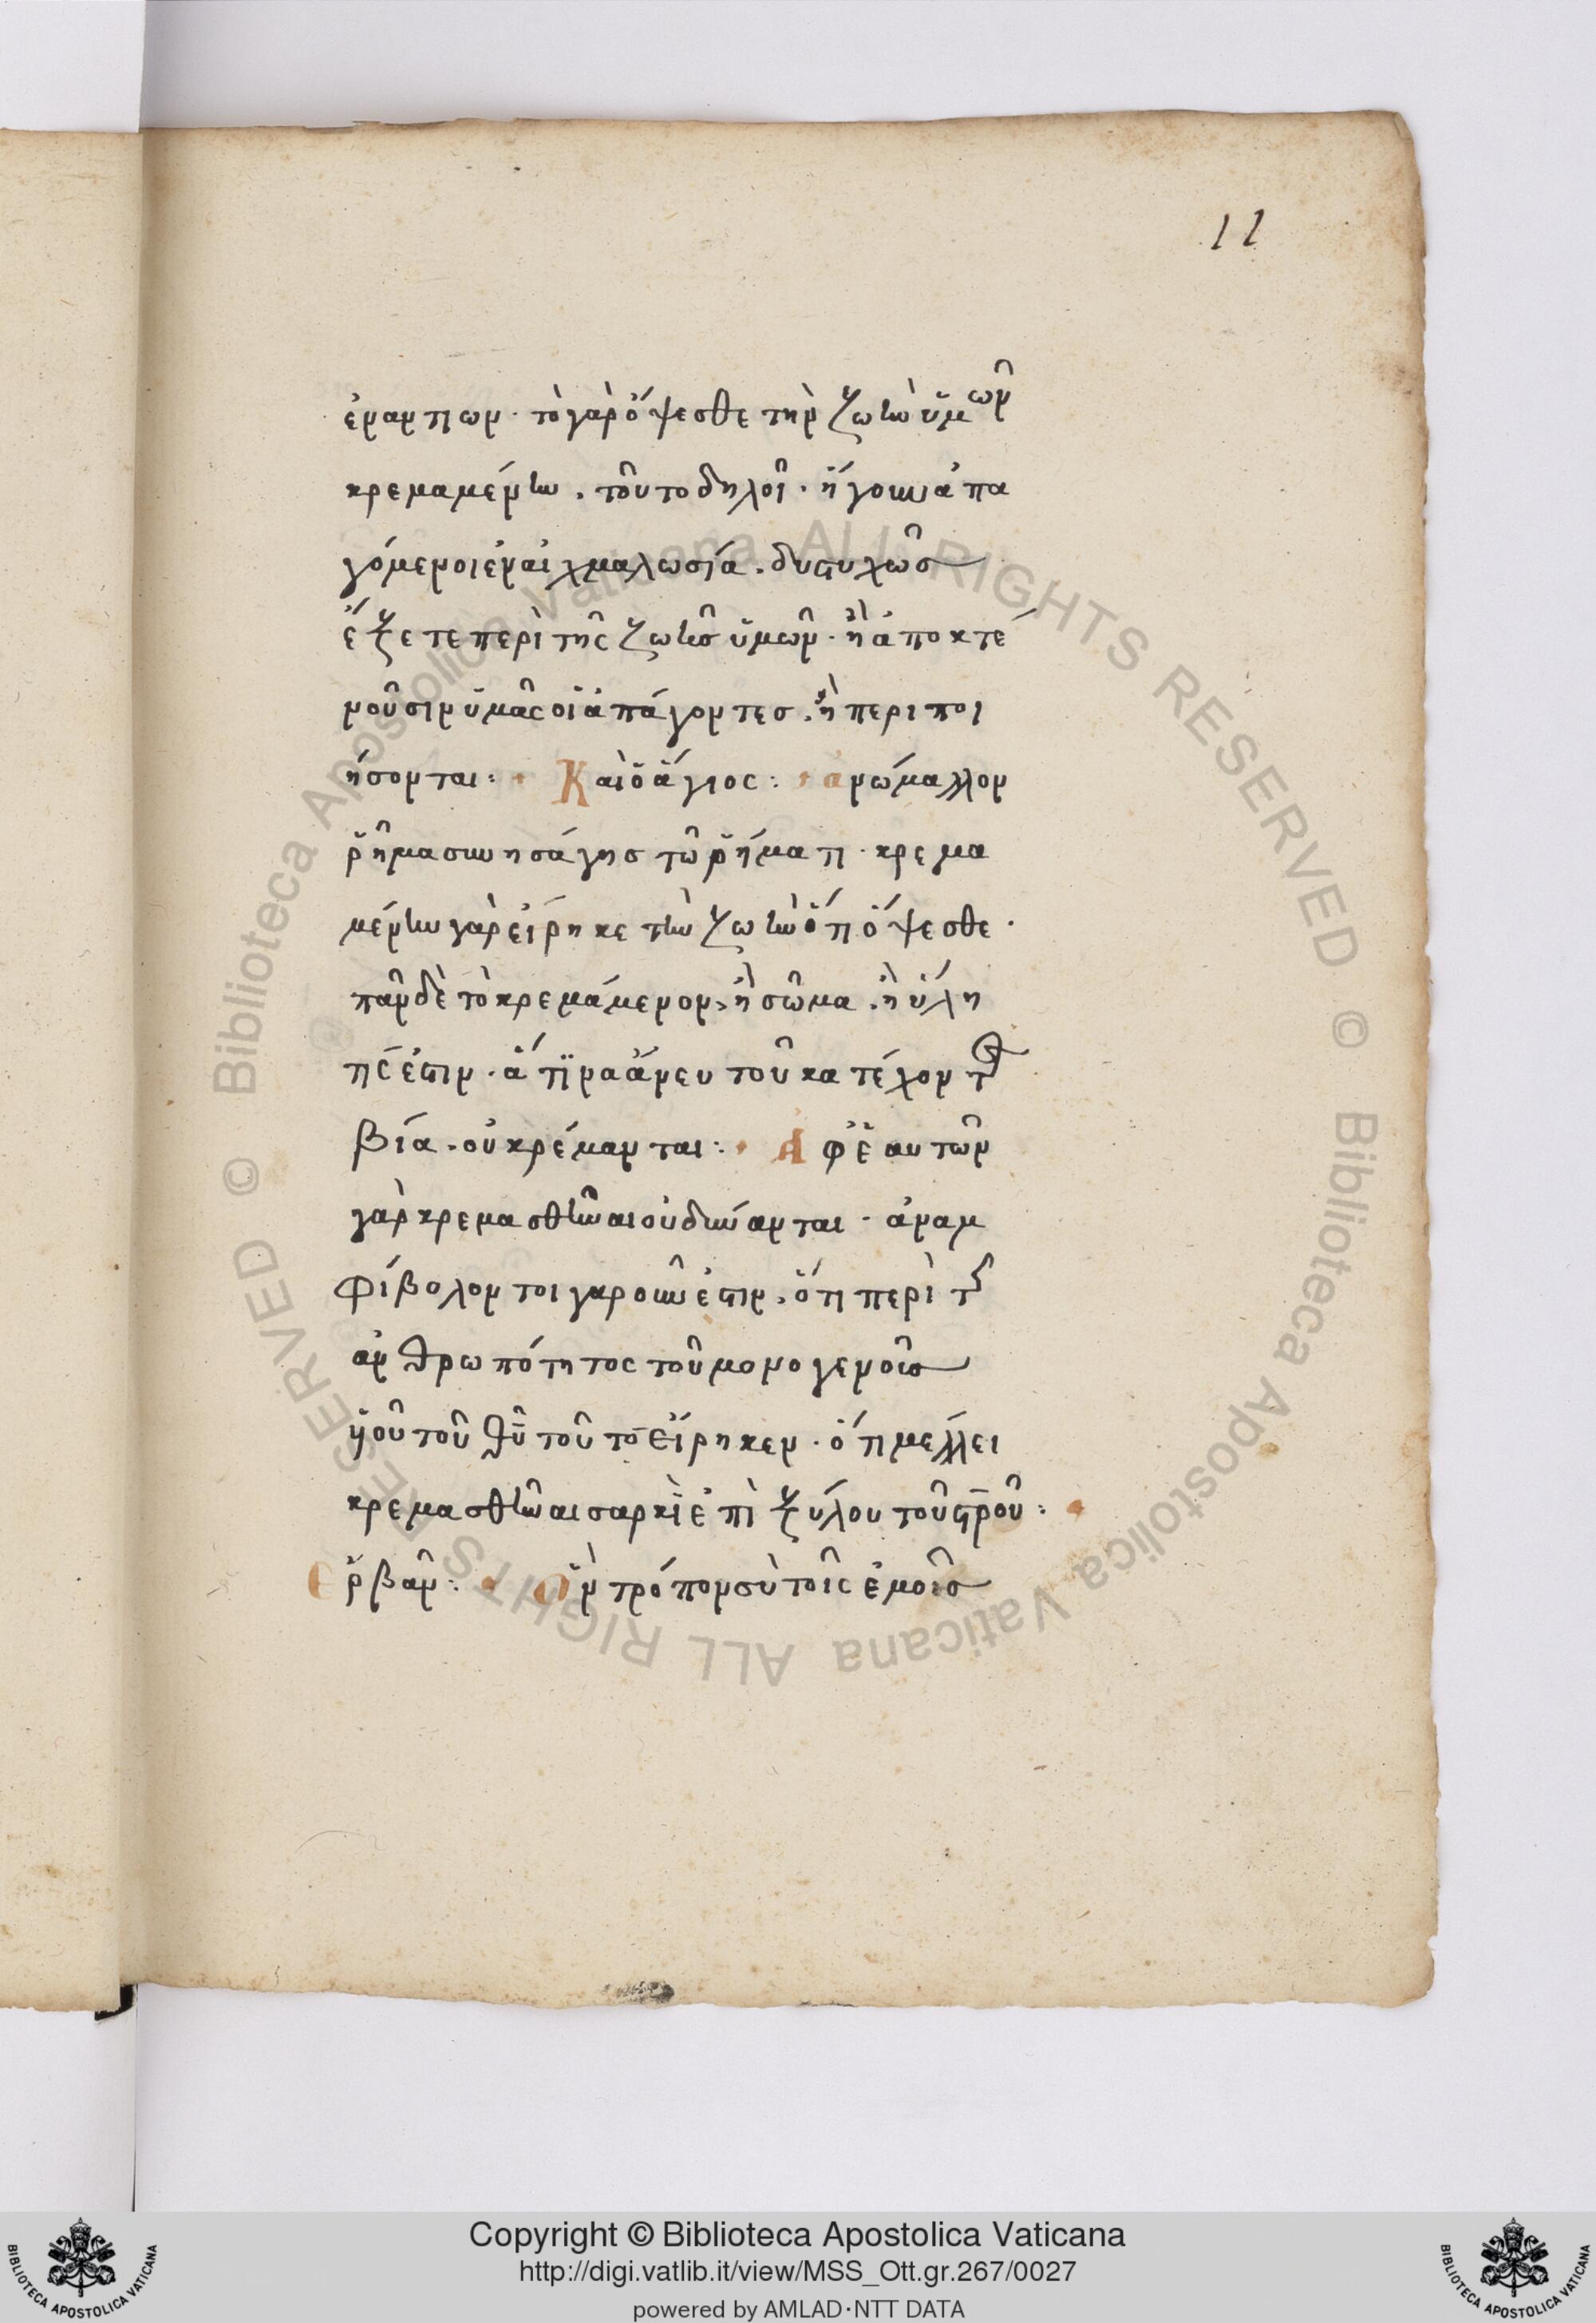 11
ἐναντιων· τὸ γὰρ ὄψεσθε τὴν ζωὴν ὑμῶν
κρεμαμένην. τοῦτο δηλοῖ· ἤγουν ἀπα
γόμενοι ἐν αἰχμαλωσία. δυστυχῶσ
ἕξετε περὶ τῆς ζωῆσ ὑμῶν· ἢ ἀποκτέ
νοῦσιν ὑμᾶς οἱ ἀπάγοντεσ. ἢ περιποι
ήσονται: Καὶ ὁ ἅγιος: ἀνώμαλλον
ῥῆμα συνησάγησ τῶ ῥήματι· κρεμα
μένην γὰρ εἴρηκε τὴν ζωὴν ὅτι ὄψεσθε·
πᾶν δὲ τὸ κρεμάμενον, ἢ σῶμα. ἢ ὕλη
τίς ἐστιν· ἅτινα ἄνευ τοῦ κατέχοντ
βία. οὐ κρέμανται: Ἀφ ἑαυτῶν
γὰρ κρεμασθῆναι οὐ δύνανται· ἀναμ
φίβολον τοιγαροῦν ἐστιν. ὅτι περὶ τ
ἀνθρωπότητος τοῦ μονογενοῦσ
υἱοῦ τοῦ θῦ τοῦτο εἴρηκεν· ὅτι μέλλει
κρεμασθῆναι σαρκὶ ἐπὶ ξύλου τοῦ στροῦ:
Ἑρβᾶν: Ὃν τρόπον σὺ τοῖς ἐμοῖσ
© Biblioteca Apostolica Vaticana ALL RIGHTS RESERVED © Biblioteca Apostolica Vaticana ALL RIGHTS RESERVED
Copyright © Biblioteca Apostolica Vaticana
http://digi.vatlib.it/view/MSS_Ott.gr.267/0027
powered by AMLAD·NTT DATA
BIBLIOTECA APOSTOLICA VATICANA
BIBLIOTECA APOSTOLICA VATICANA